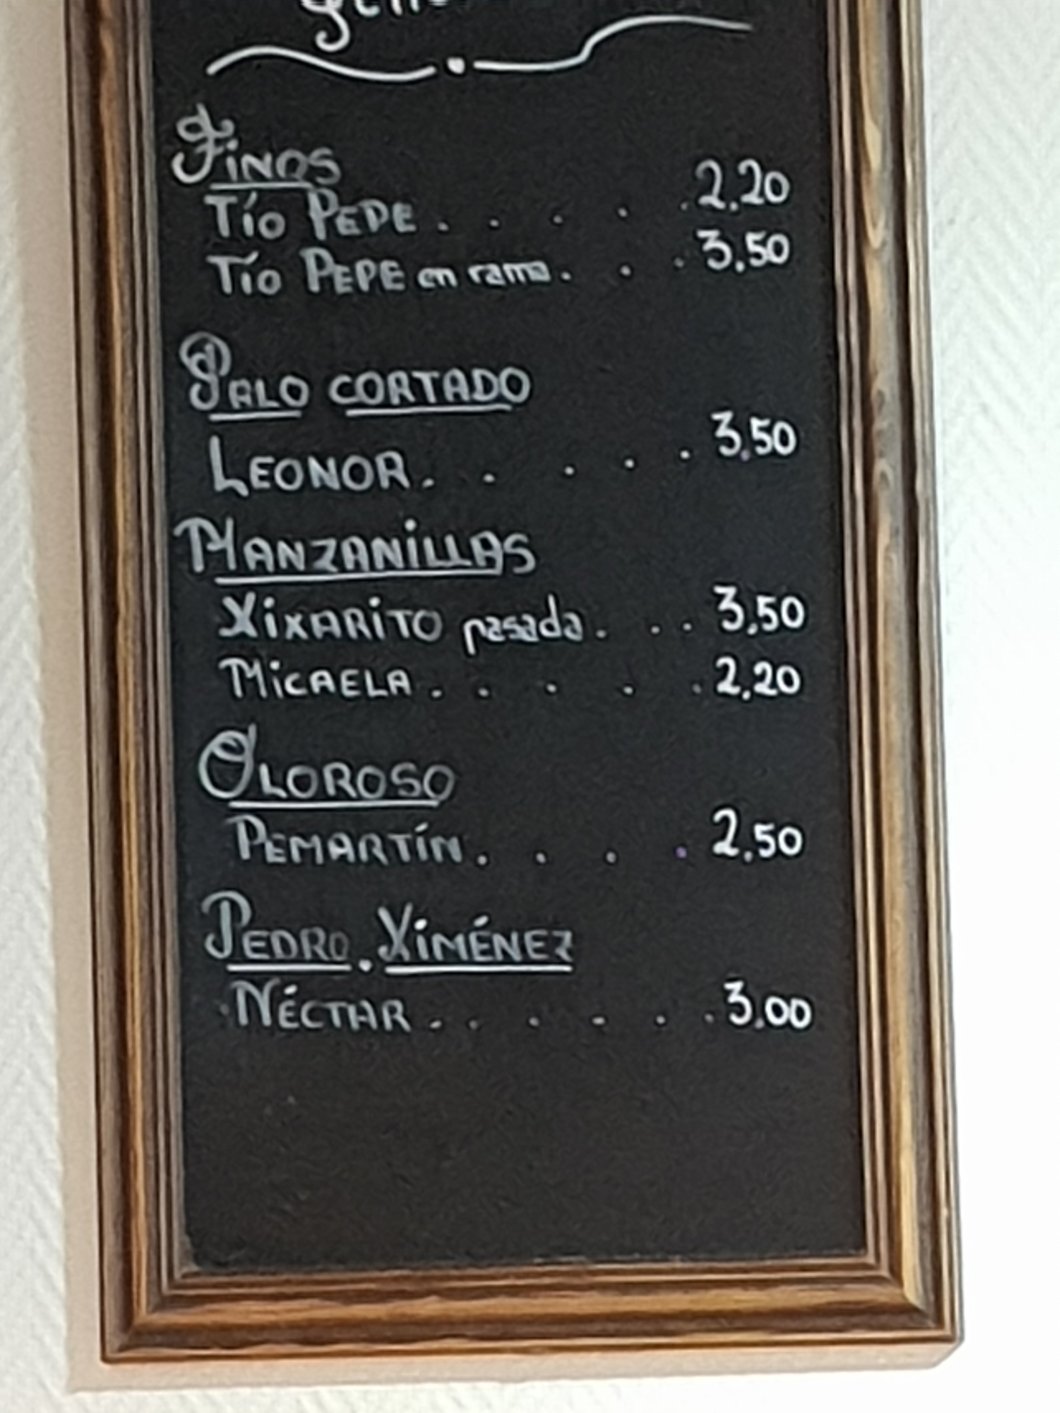 Finos
Tío Pepe . . . . . 2,20
Tío Pepe en rama . . . 3,50
Palo cortado
Leonor . . . . . 3,50
Manzanillas
Xixarito pasada . . . 3,50
Micaela . . . . . 2,20
Oloroso
Pemartín . . . . 2,50
Pedro . Ximénez
Néctar . . . . . . 3,00